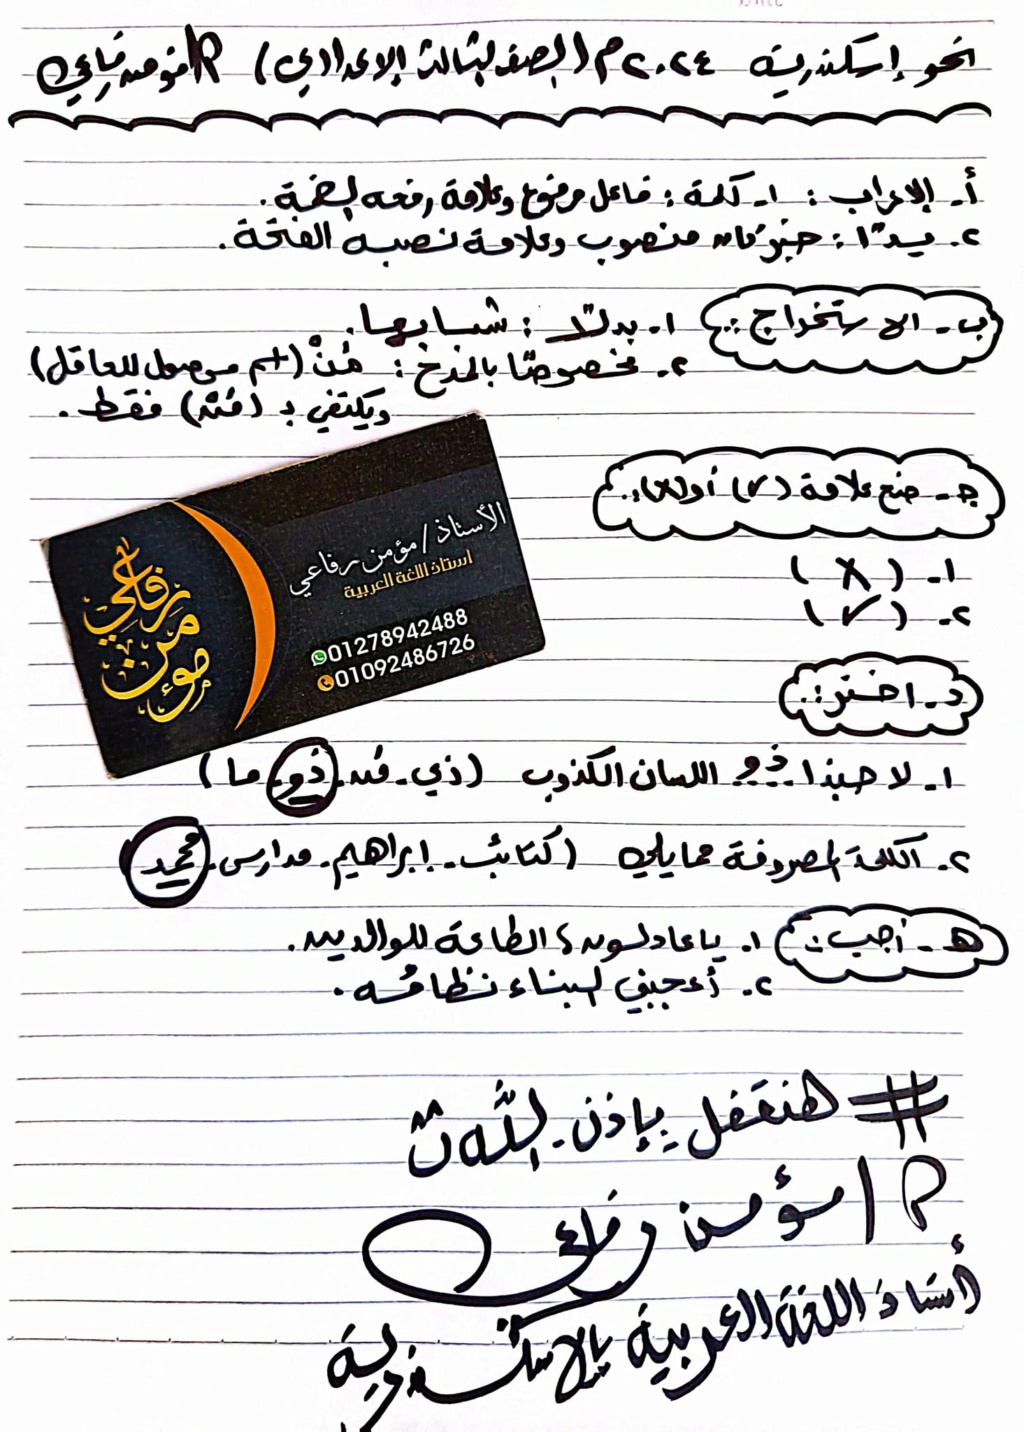 نحو إسكندرية ٢٠٢٤م (الصف الثالث الإعدادي) م/مؤمن رفاعي
أ- الإعراب: ١- كلمة: فاعل مرفوع وعلامة رفعه الضمة.
٢- يدًا: خبر كان منصوب وعلامة نصبه الفتحة.
ب- الاستخراج: ١- بدلًا: شبابها.
٢- مخصوصًا بالمدح: مَنْ (اسم موصول للعاقل)
ويكتفي بـ (مَنْ) فقط.
جـ- ضع علامة (✓) أو (x):
١- (X)
٢- (✓)
الأستاذ/مؤمن رفاعي
أستاذ اللغة العربية
01278942488
01092486726
رفاعي
مؤمن
د- اختر:
١- لا حبذا ذو اللسان الكذوب (ذي - من - ذو - ما)
٢- الكلمة المصروفة مما يلي (كتائب - إبراهيم - مدارس - محمد)
هـ- أجب: ١- يا عادلون، الطاعة للوالدين.
٢- أعجبني البناء نظامُه.
# هنقفل بإذن الله
م/مؤمن رفاعي
أستاذ اللغة العربية بالإسكندرية